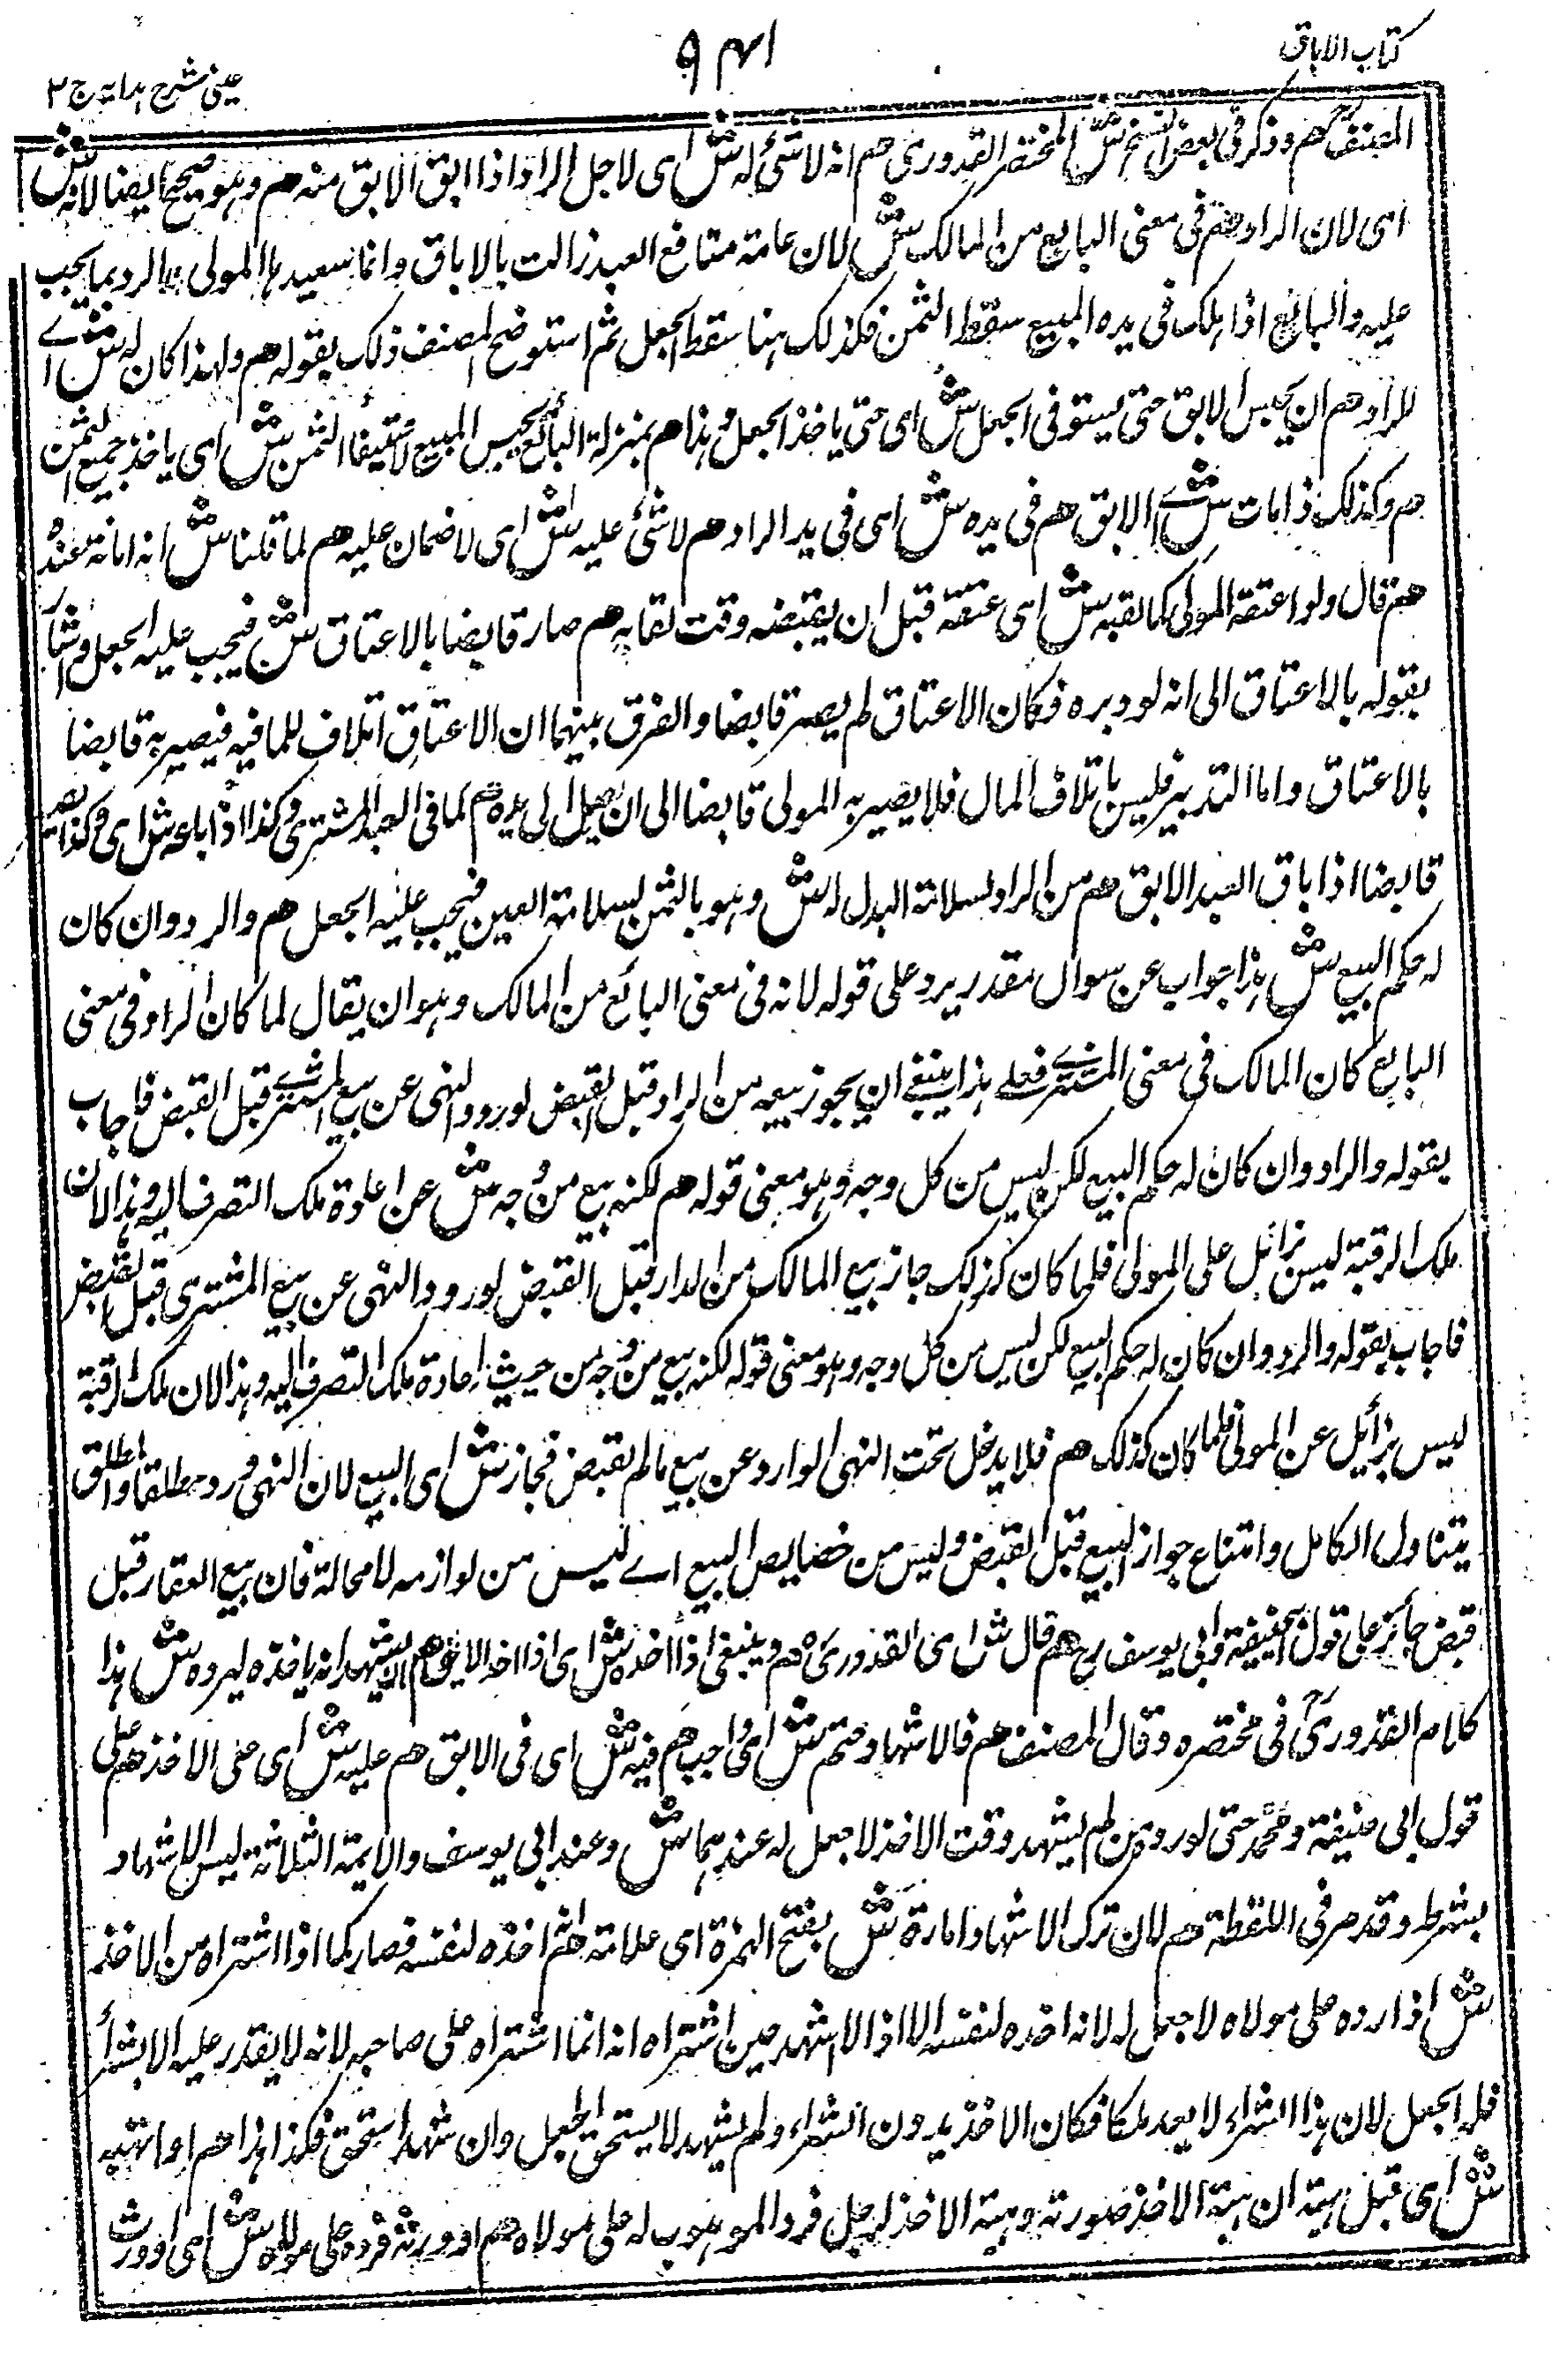 كتاب الاباق
۹۴۱
عينى شرح هدايه ج ۲
المصنف هم وذكر فى بعض النسخ ش المختصر القدورى هم انه لا شئ له ش اى لاجل الراد اذا ابق الابق منه هم وهو صحيح ايضا لانه ش
اى لان الراد هم فى معنى البايع من المالك ش لان عامة منافع العبد زالت بالاباق وانما يستعيدها المولى بالرد بما يجب
عليه والبائع اذا هلك فى يده المبيع سقط الثمن فكذلك هنا سقط الجعل ثم استوضح المصنف ذلك بقوله هم ولهذا كان له ش اے
للراد هم ان يحبس الابق حتى يستوفى الجعل ش اى حتى ياخذ الجعل وهذا هم بمنزلة البائع يحبس المبيع لاستيفاء الثمن ش اى ياخذ جميع الثمن
هم وكذلك اذا مات ش اے الابق هم فى يده ش اى فى يد الراد هم لا شئ عليه ش اى لا ضمان عليه هم لما قلنا ش انه امانة عنده
هم قال ولو اعتقه المولى كما لقيه ش اى عتقه قبل ان يقبضه وقت لقايه هم صار قابضا بالاعتاق ش فيجب عليه الجعل واشار
بقوله بالاعتاق الى انه لو دبره فكان الاعتاق لم يصر قابضا والفرق بينهما ان الاعتاق اتلاف للمافيه فيصير به قابضا
بالاعتاق واما التدبير فليس باتلاف المال فلا يصير به المولى قابضا الى ان يصل الى يده هم كما فى العبد المشترى وكذا اذا باعه ش اى وكذا يصير
قابضا اذا باق العبد الابق هم من الراد لسلامة البدل له ش وهو بالثمن لسلامة العين فيجب عليه الجعل هم والرد وان كان
له حكم البيع ش هذا جواب عن سوال مقدر يرد على قوله لانه فى معنى البائع من المالك وهو ان يقال لما كان الراد فى معنى
البايع كان المالك فى معنى المشترے فعلى هذا ينبغے ان يجوز بيعه من الراد قبل القبض لورود النهى عن بيع المشترے قبل القبض فاجاب
بقوله والراد وان كان له حكم البيع لكن ليس من كل وجه وهو معنى قوله هم لكنه بيع من وجه ش عن اعادة ملك التصرف اليه وهذا لان
ملك الرقبة ليس بزائل على المولى فلما كان كذلك جاز بيع المالك من الدار قبل القبض لورود النهى عن بيع المشترى قبل القبض
فاجاب بقوله والرد وان كان له حكم البيع لكن ليس من كل وجه وهو معنى قوله لكنه بيع من وجه من حيث اعادة ملك التصرف اليه وهذا لان ملك الرقبة
ليس بزائل عن المولى فلما كان كذلك هم فلا يدخل تحت النهى الوارد عن بيع مالم يقبض فجاز ش اى البيع لان النهى ورد مطلقا والمطلق
يتناول الكامل وامتناع جواز البيع قبل القبض وليس من خصايص البيع اے ليس من لوازمه لا محالة فان بيع العقار قبل
قبض جائز على قول ابى حنيفة وابى يوسف رح هم قال ش اى القدورى هم وينبغى اذا اخذه ش اى اذا اخذ الابق هم ان يشهد انه ياخذه ليرده ش هذا
كلام القدورى فى مختصره وقال المصنف هم فالاشهاد حتم ش اى واجب هم فيه ش اى فى الابق هم عليه ش اى على الاخذ هم على
قول ابى حنيفة ومحمد حتى لو رده من لم يشهد وقت الاخذ لا جعل له عندهما ش وعند ابى يوسف والايمة الثلاثة ليس الاشهاد
بشرط وقد مر فى اللقطة هم لان ترك الاشهاد امارة ش بفتح الهمزة اى علامة هم انه اخذه لنفسه فصار كما اذا اشتراه من الاخذ
ش اذا رده على مولاه لا جعل له لانه اخذه لنفسه الا اذا اشهد حين اشتراه انه انما اشتراه على صاحبه لانه لا يقدر عليه الا بشراء
فله الجعل لان هذا الشراء لا يعد ملكا فكان الاخذ بدون الشراء ولم يشهد لا يستحق الجعل وان شهد استحق فكذا هذا هم او اتهبه
ش اى قبل هبته ان هبة الاخذ صورته وهبة الاخذ لرجل فرد الموهوب له على مولاه هم او ورثه فرده على مولاه ش اى او ورث